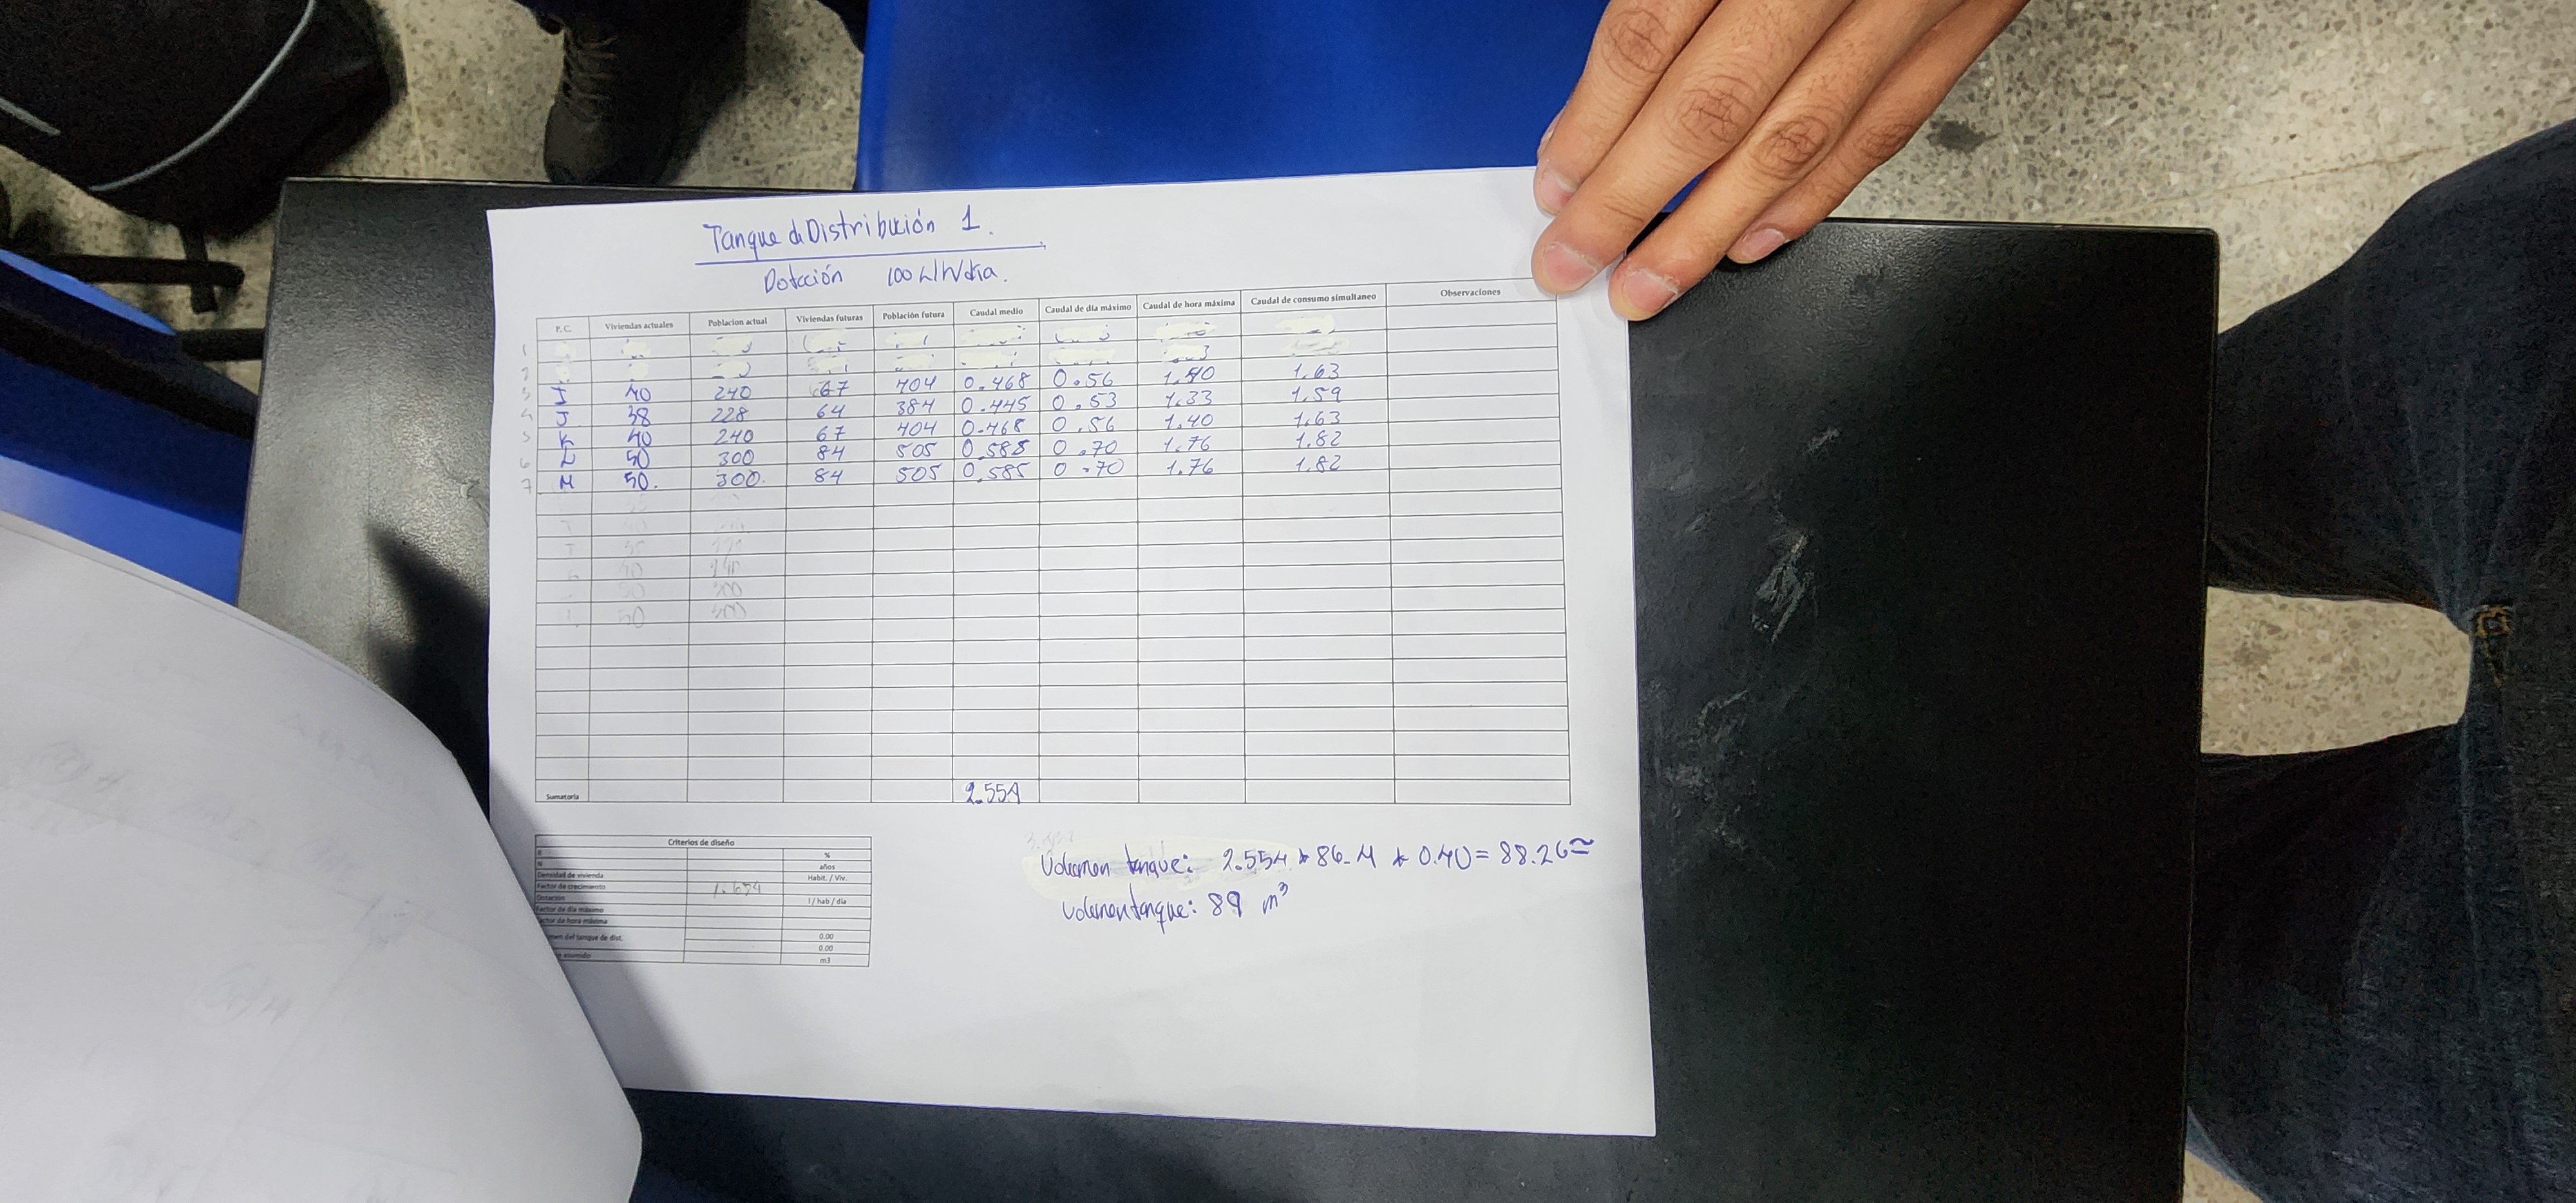 Tanque de Distribución 1.
Dotación 100 L/h/día.
P.C. Viviendas actuales Poblacion actual Viviendas futuras Población futura Caudal medio Caudal de día máximo Caudal de hora máxima Caudal de consumo simultaneo Observaciones
1
2
3 I 40 240 67 404 0.468 0.56 1.40 1.63
4 J 38 228 64 384 0.445 0.53 1.33 1.59
5 K 40 240 67 404 0.468 0.56 1.40 1.63
6 L 50 300 84 505 0.585 0.70 1.76 1.82
7 M 50. 300. 84 505 0.585 0.70 1.76 1.82
40
J 38
40 240
50 300
50 300
Sumatoria 2.554
Criterios de diseño
R %
N años
Densidad de vivienda Habit. / Viv.
Factor de crecimiento 1.684
Dotación l / hab / día
Factor de día máximo
de hora máxima
del tanque de dist. 0.00
0.00
asumido m3
Volumen tanque: 2.554 * 86.4 * 0.40 = 88.26 ≃
Volumen tanque: 89 m³